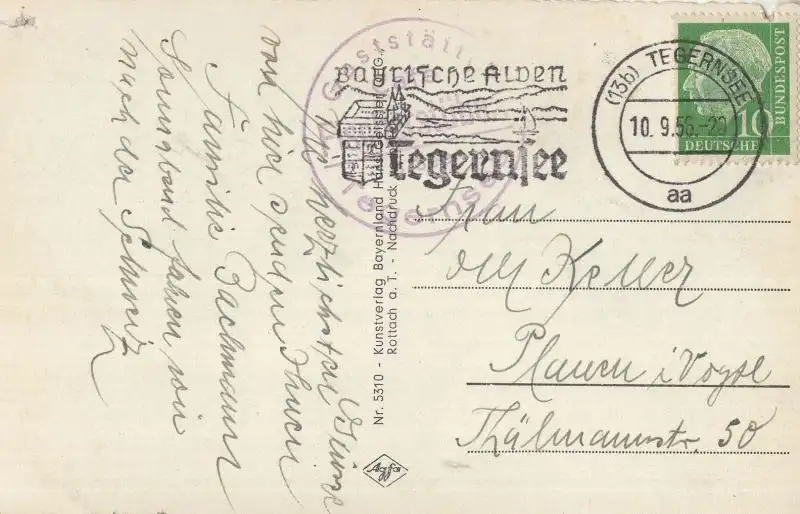 Die herzlichsten Grüsse
von hier senden Ihnen
Familie Bachmann
Sonnabend fahren wir
nach der Schweiz
Nr. 5310 - Kunstverlag Bayernland Hans
Rottach a. T. - Nachdruck
Agfa
Gaststätte
Bayrische Alpen
Tegernsee
(13b) TEGERNSEE
10. 9.56.-20
aa
10
DEUTSCHE
BUNDESPOST
Frau
Keller
Plauen i Vogtl
Thälmannstr. 50